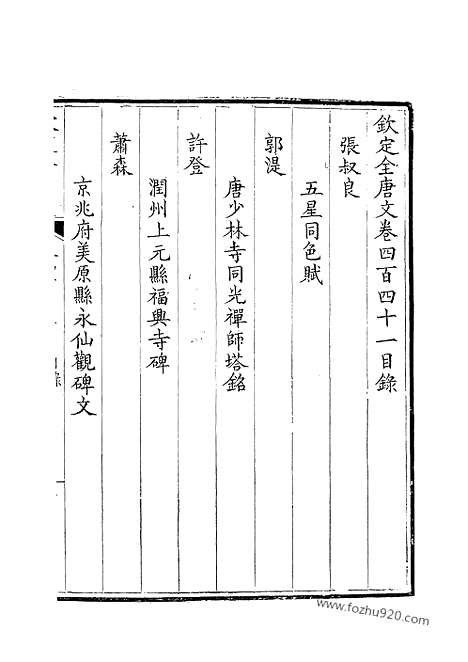 欽定全唐文卷四百四十一目錄
張叔良
五星同色賦
郭湜
唐少林寺同光禪師塔銘
許登
潤州上元縣福興寺碑
蕭森
京兆府美原縣永仙觀碑文
www.fozhu920.com